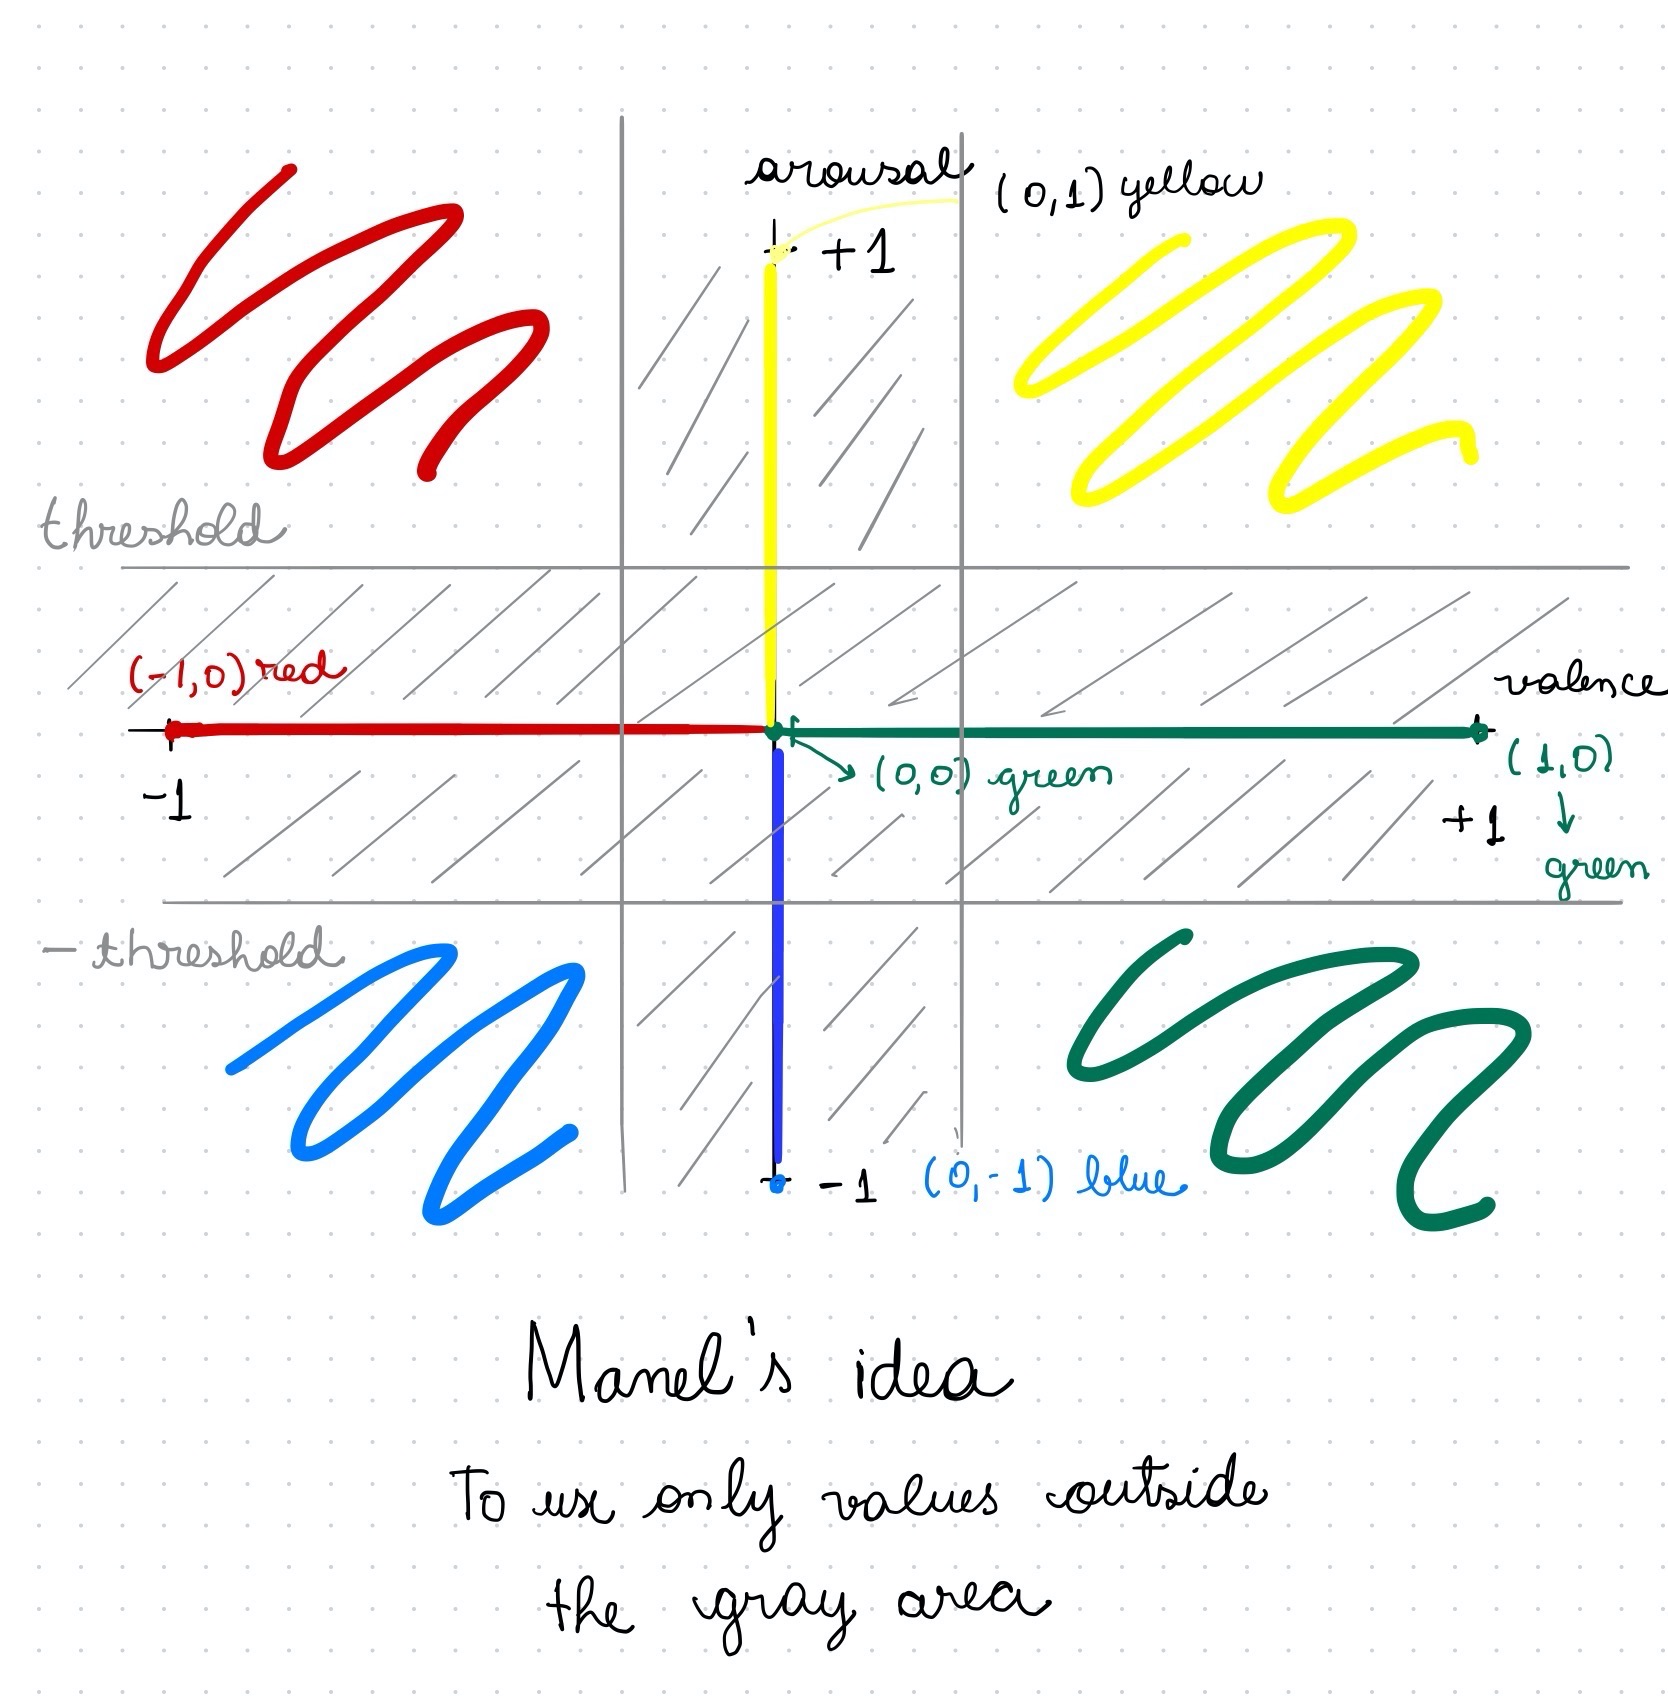 arousal
(0,1) yellow
+1
threshold
(-1,0) red
valence
-1
(0,0) green
(1,0)
+1
green
- threshold
-1
(0,-1) blue
Manel's idea
To use only values outside
the gray area